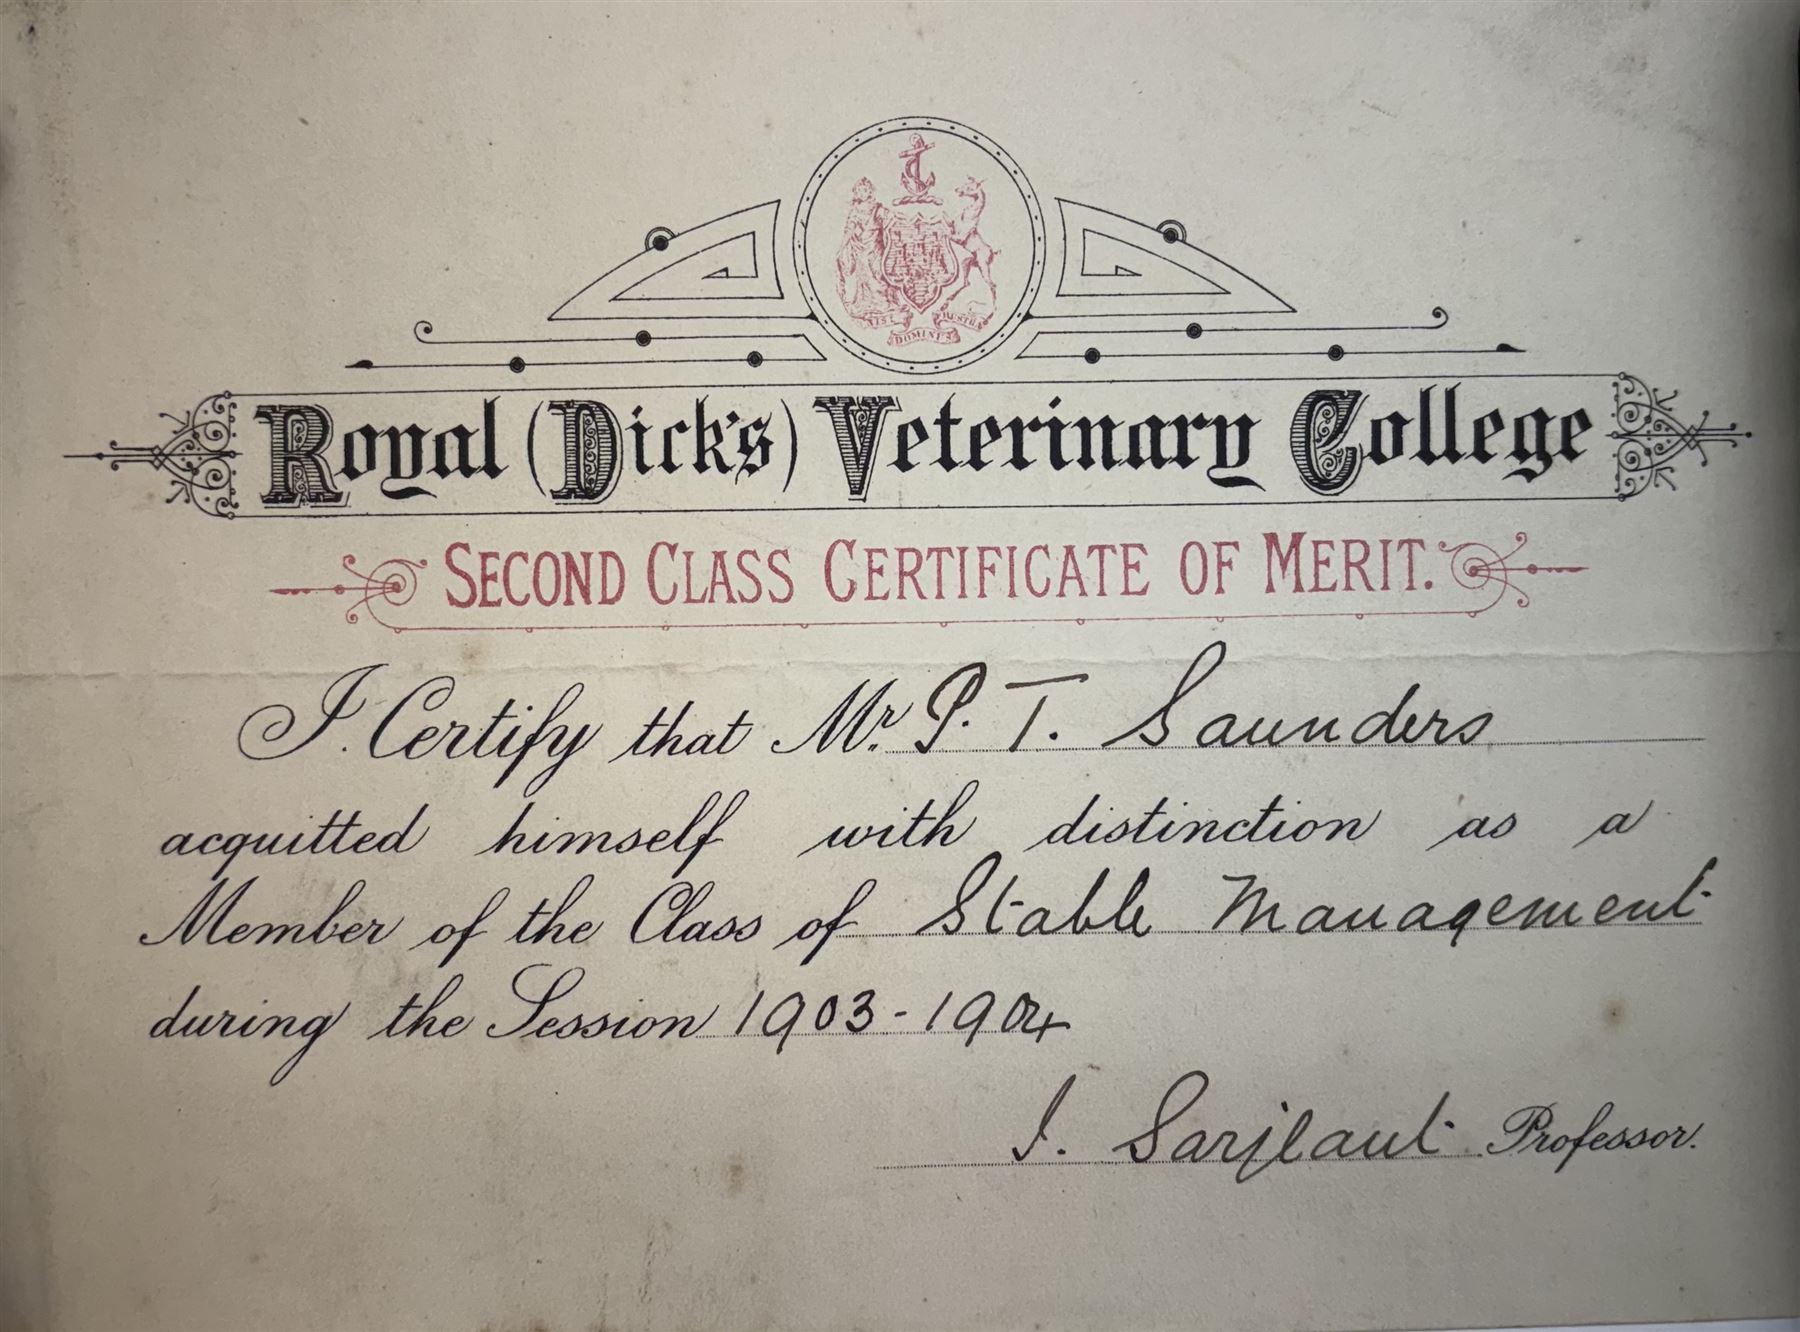 NISI DOMINUS FRUSTRA
Royal (Dick's) Veterinary College
SECOND CLASS CERTIFICATE OF MERIT.
I Certify that Mr. P. T. Saunders
acquitted himself with distinction as a
Member of the Class of Stable Management
during the Session 1903-1904
Professor.